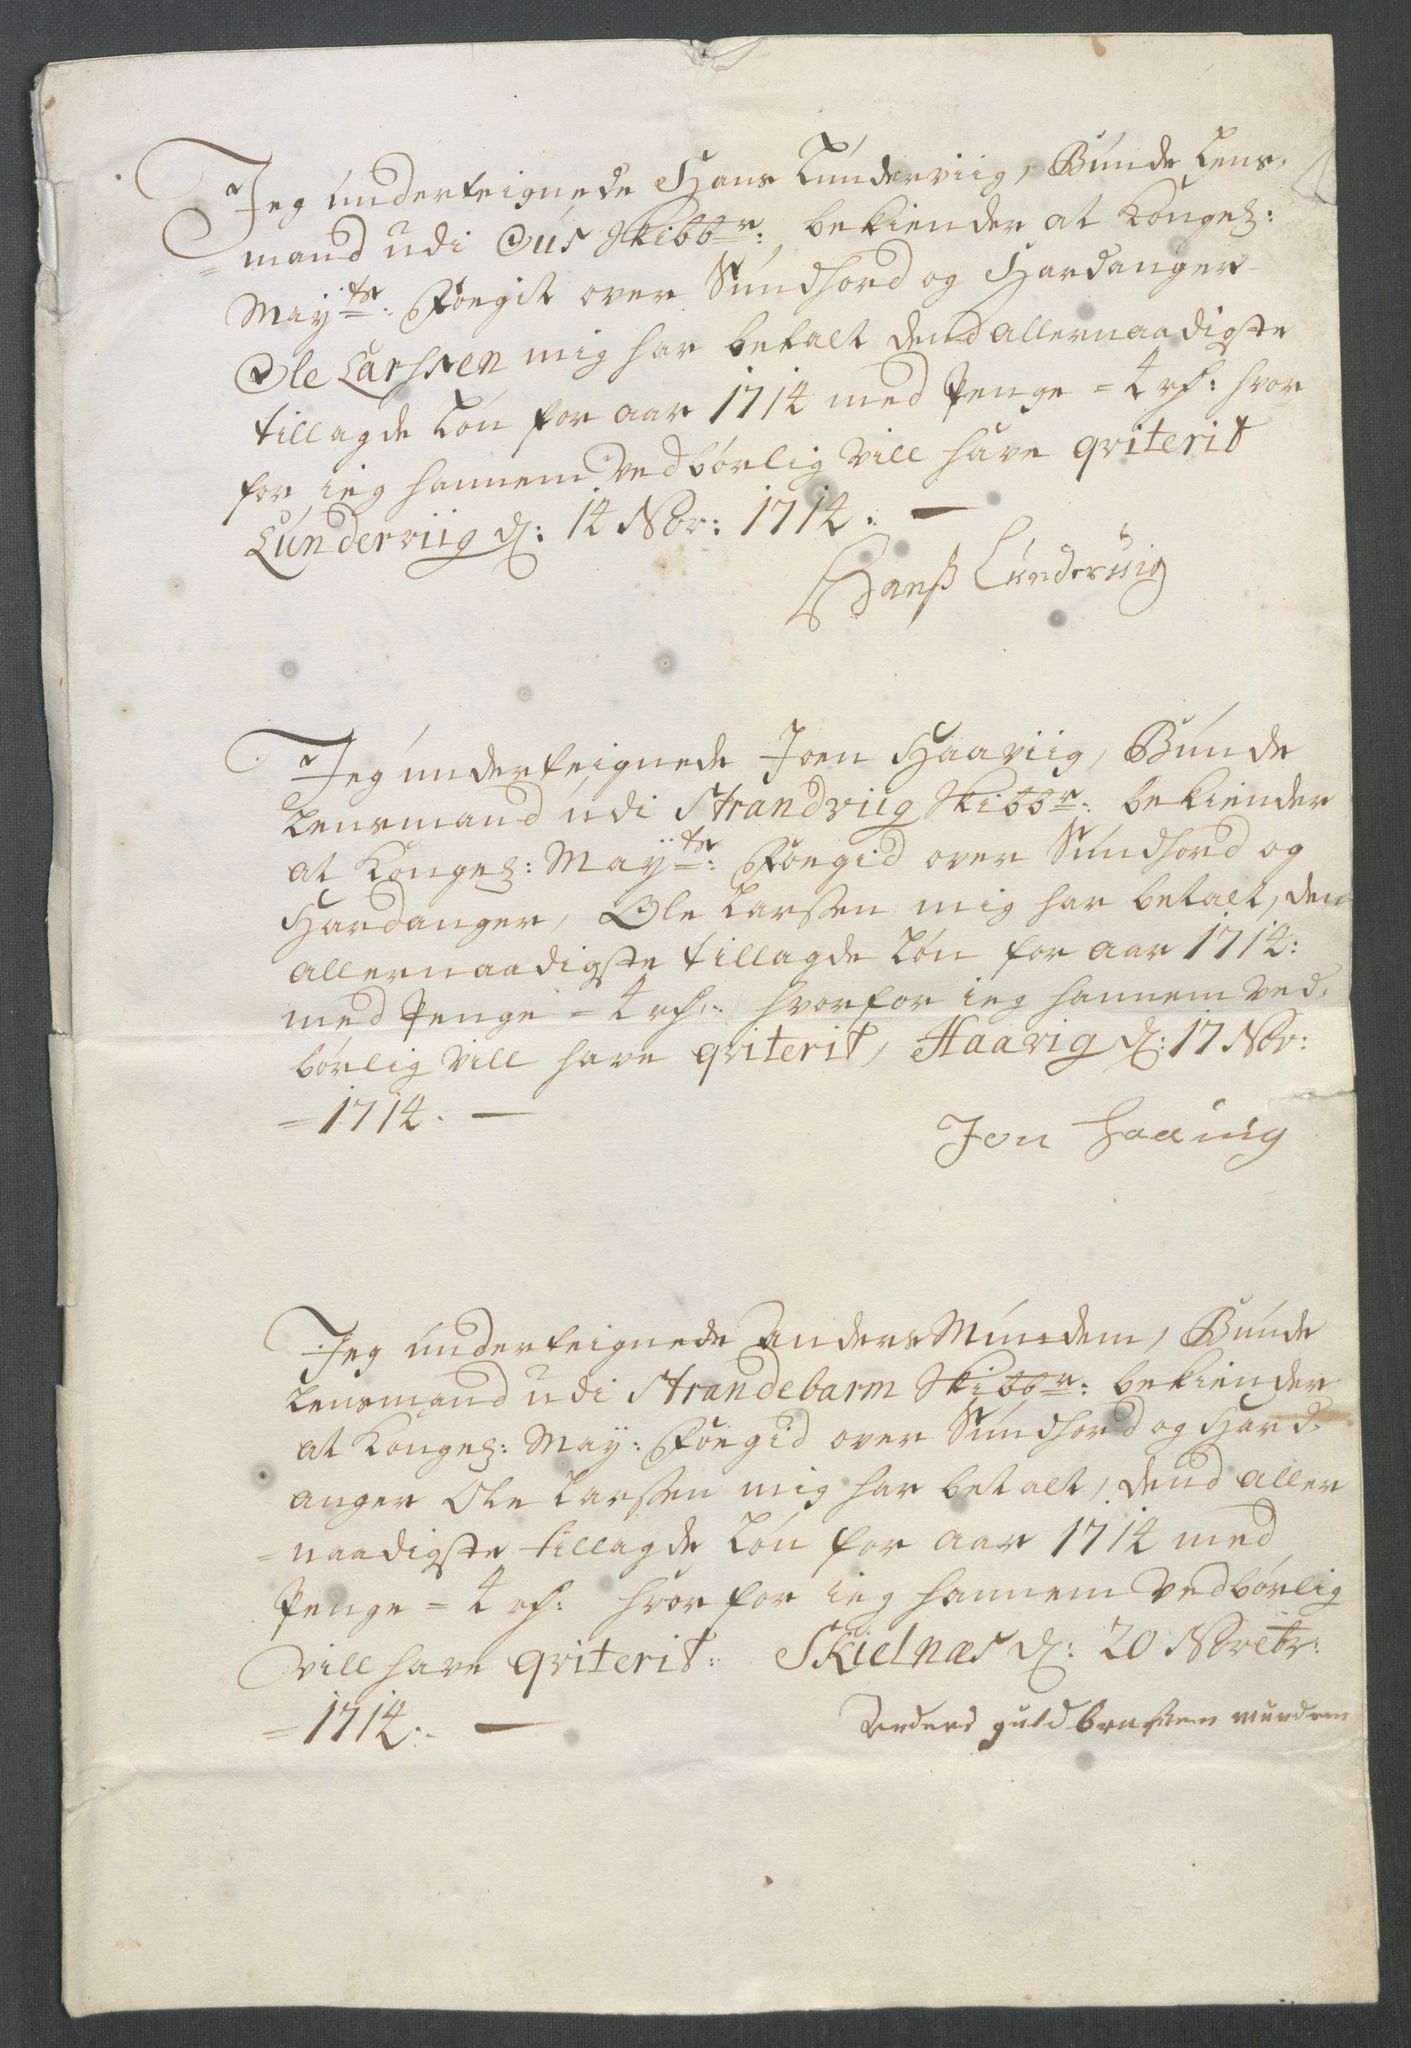 Jeg underteignede Hans Lunderviig, Bunde Lens-
=mand udi Ous Skibbr: bekiender at Konge:
Mayts: Foegit over Sundhord og Hardanger
Ole Larhsen mig har betalt dend allernaadigste
tillagde Løn for aar 1714 med Penge = 4 rh: hvor
for ieg hannem Vedbørlig Vill have qviterit
Lunderviig d: 14 Nov: 1714. —
Hanß Lunderuig
Jeg underteignede Joen Haaviig, Bunde
Lensmand udi Strandviig Skibbr: bekiender
at Konge: Mayts: Foegid over Sundhord og
Hardanger, Ole Larssen mig har betalt, den
allernaadigste tillagde Løn for aar 1714:
med Penge = 4 rh: hvorfor ieg hannem Ved-
børlig Vill have qviterit, Haavig d: 17 Nov:
=1714. —
Jon Haauig
Jeg underteignede Anders Mundem, Bunde
Lensmand udi Strandebarm Skibbr: bekiender
at Konge: May: Foegid over Sundhord og Hard-
anger Ole Larssen mig har betalt, dend aller
=naadigste tillagde Løn for aar 1714 med
Penge = 4 rh: hvorfor ieg hannem Vedbørlig
Vill have qviterit: Skielnæs d: 20 Novebr:
=1714: —
Anders guldbrussen mundem